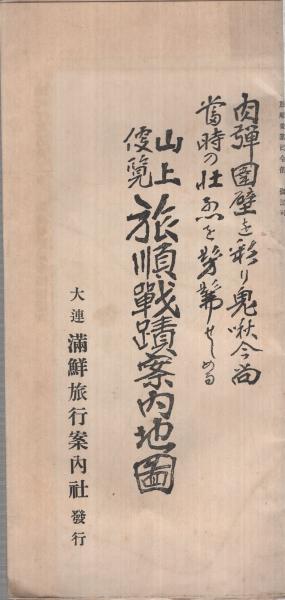 肉弾囲壁を彩り鬼啾今尚
當時の壮烈を髣髴せしめる
山上
便覧
旅順戰蹟案内地圖
大連 滿鮮旅行案内社 發行